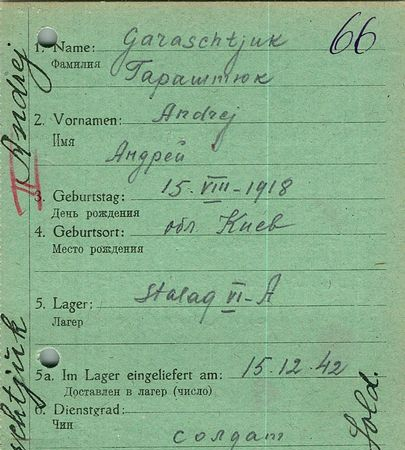 66
1. Name: Garaschtjuk
Фамилия Гараштюк
2. Vornamen: Andrej
Имя
Андрей
3. Geburtstag: 15. VIII-1918
День рождения
4. Geburtsort: обл. Киев
Место рождения
5. Lager: Stalag VI-A
Лагер
5а. Im Lager eingeliefert am: 15.12.42
Доставлен в лагер (число)
6. Dienstgrad:
Чин
солдат
Andrej
II
schtjuk
Sold.